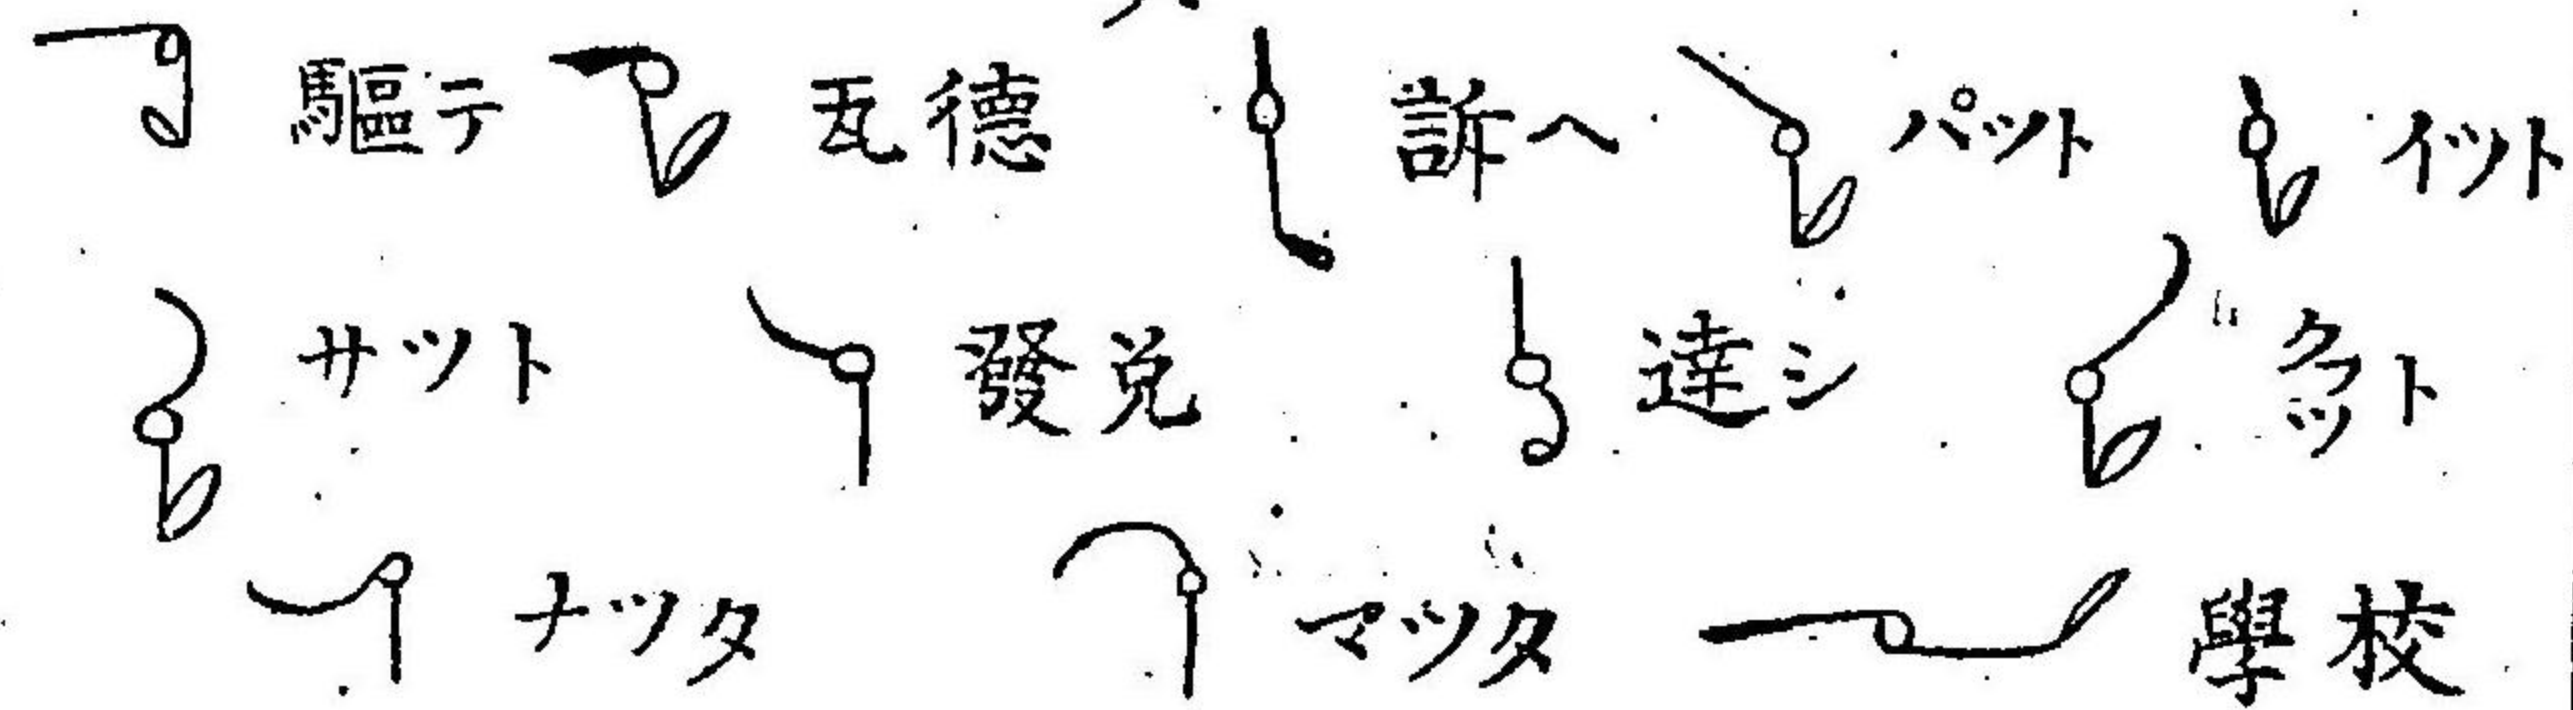 驅テ 瓦德 訴ヘ パット イット
サット 發兌 達シ クワット
ナッタ マッタ 學校